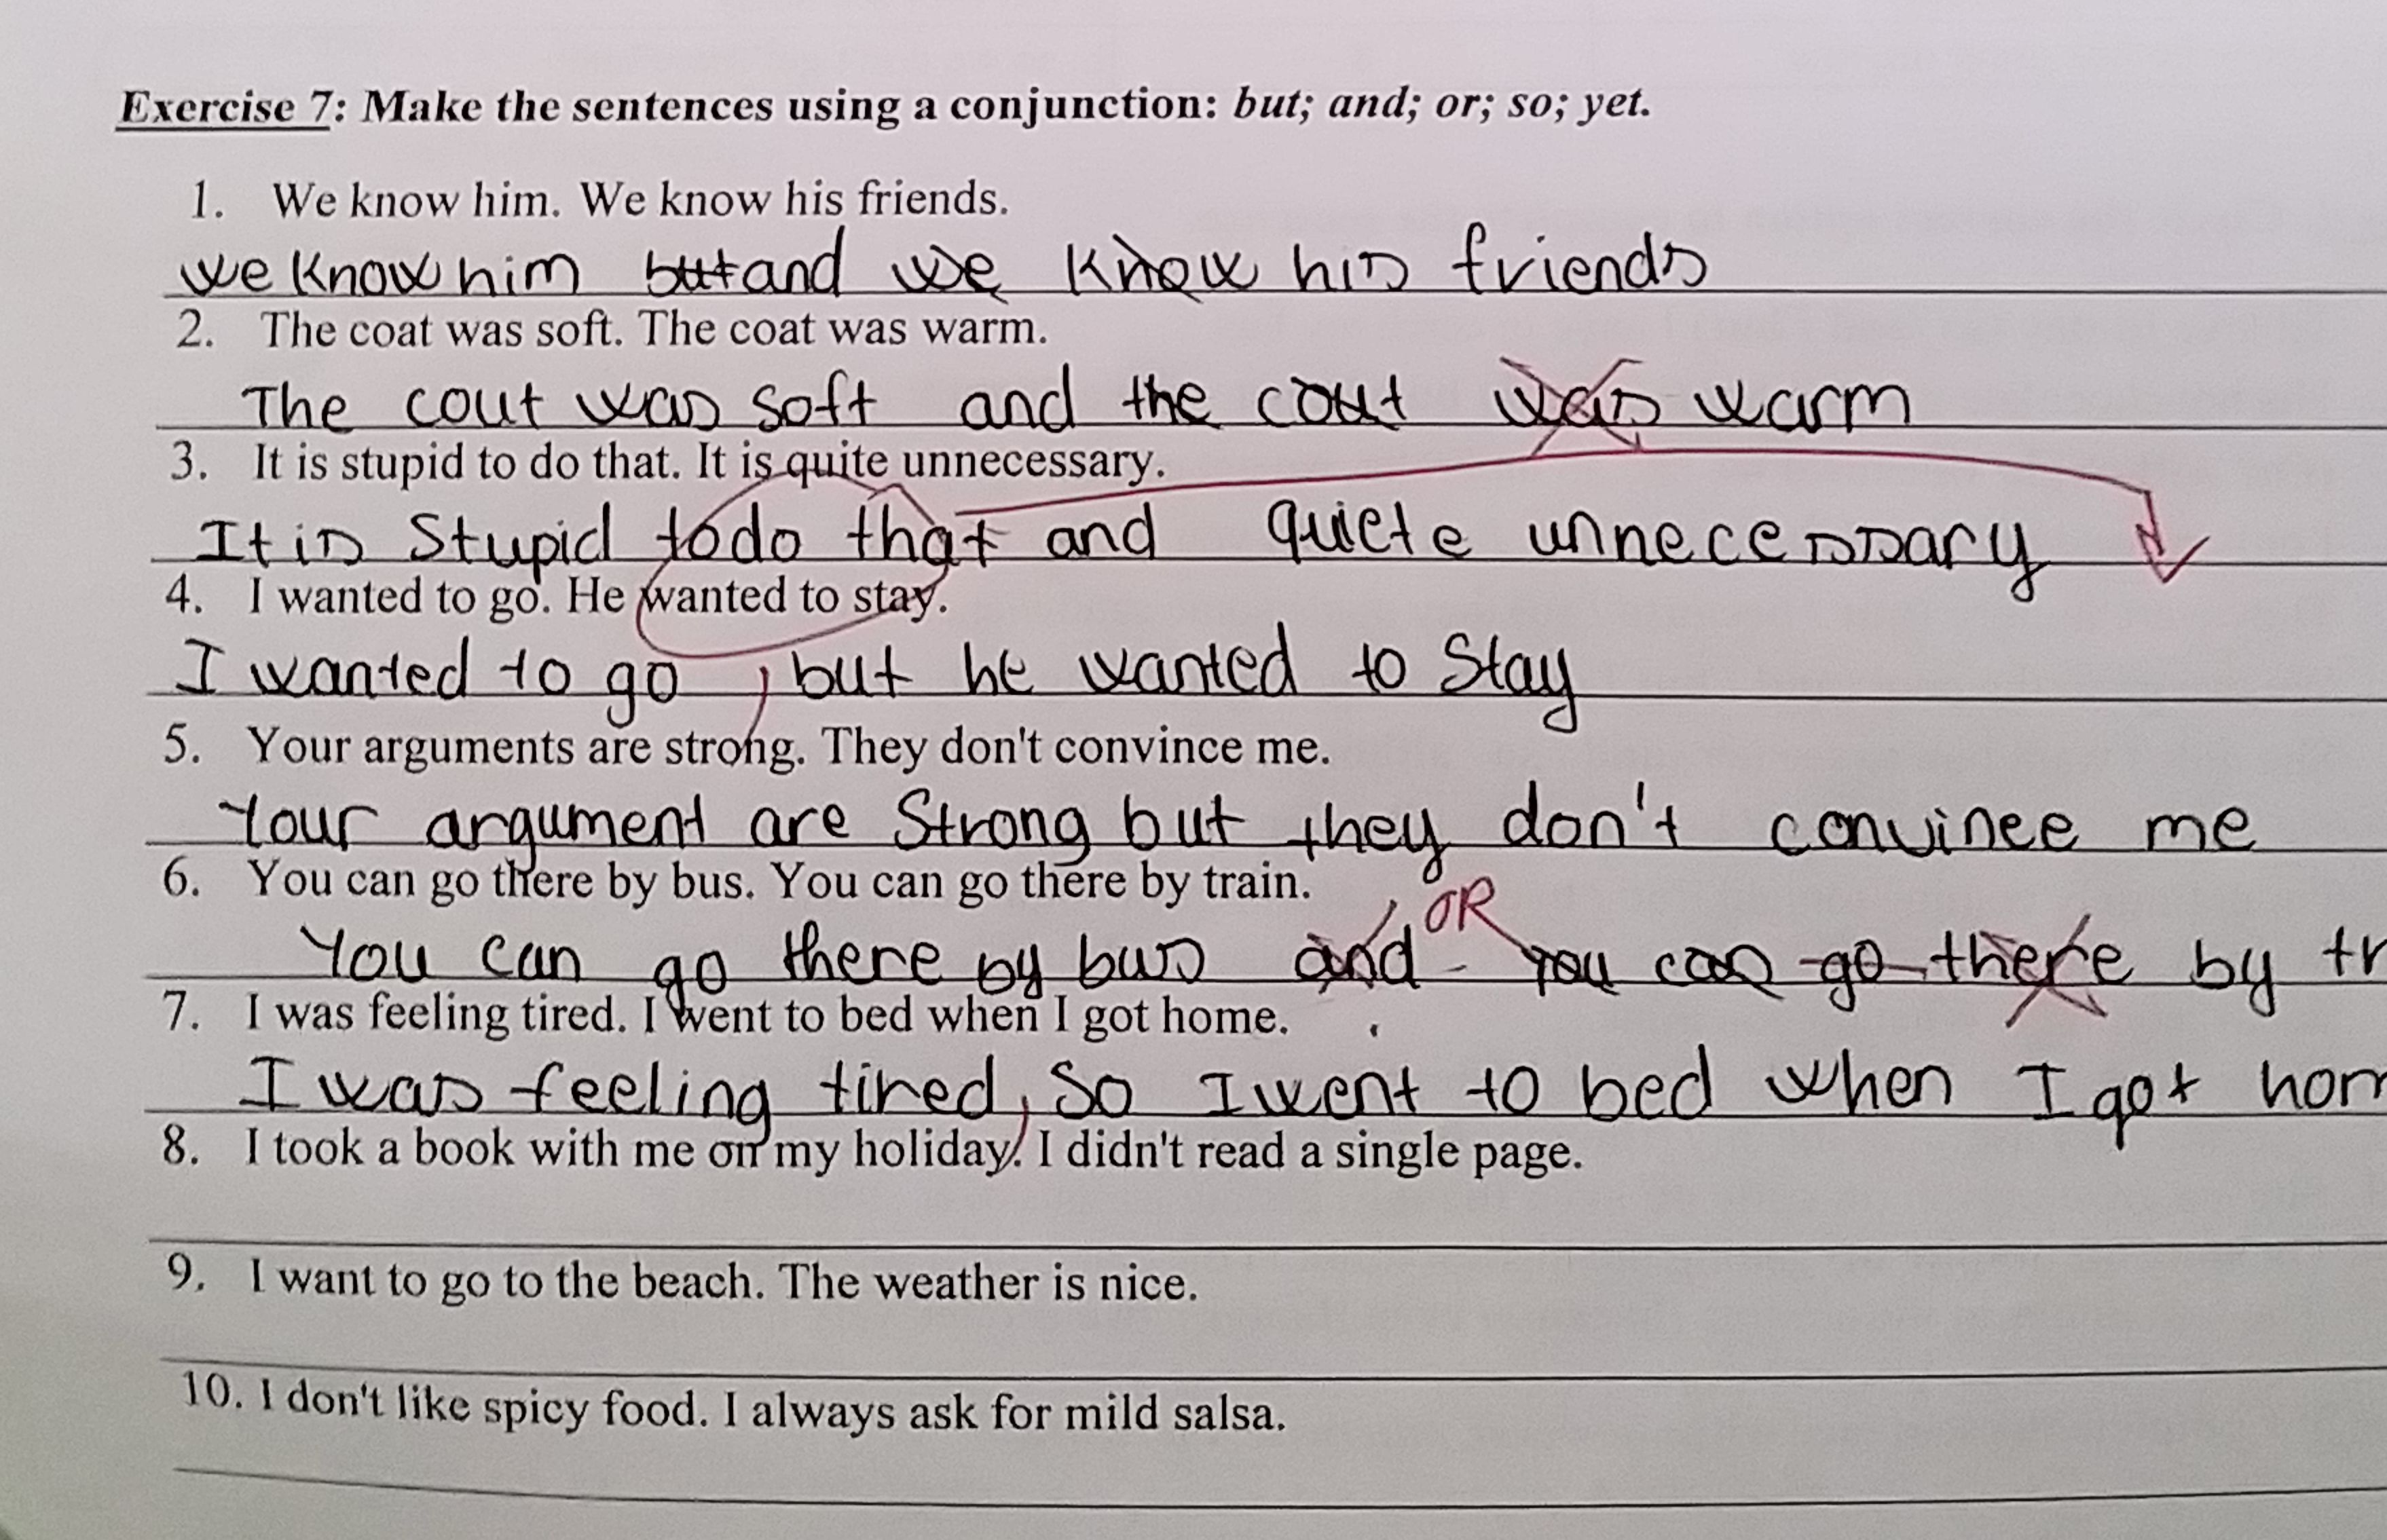 Exercise 7: Make the sentences using a conjunction: but; and; or; so; yet.
1. We know him. We know his friends.
we know him but and we know his friends
2. The coat was soft. The coat was warm.
The cout was soft and the cout was warm
3. It is stupid to do that. It is quite unnecessary.
It is stupid to do that and quiete unnecessary
4. I wanted to go. He wanted to stay.
I wanted to go , but he wanted to stay
5. Your arguments are strong. They don't convince me.
Your argument are strong but they don't convinee me
6. You can go there by bus. You can go there by train.
OR
You can go there by bus and you can go there by tr
7. I was feeling tired. I went to bed when I got home.
I was feeling tired, so I went to bed when I got hom
8. I took a book with me on my holiday. I didn't read a single page.
9. I want to go to the beach. The weather is nice.
10. I don't like spicy food. I always ask for mild salsa.